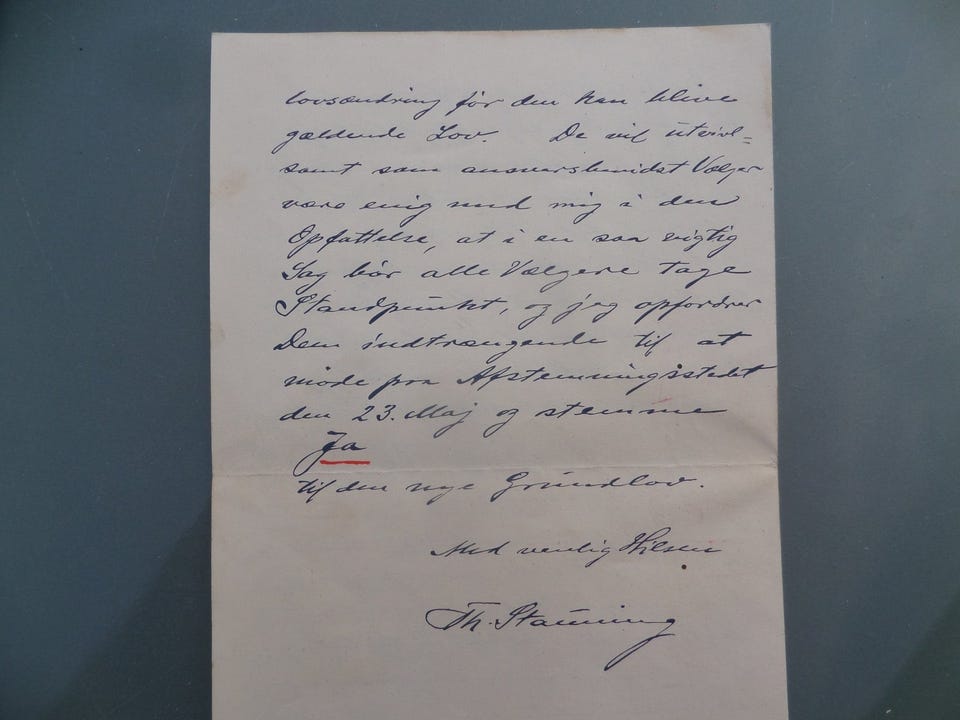 lovsændring før den kan blive
gældende Lov. De vil utvivl=
somt som ansvarsbevidst Vælger
være enig med mig i den
Opfattelse, at i en saa vigtig
Sag bør alle Vælgere tage
Standpunkt, og jeg opfordrer
Dem indtrængende til at
møde paa Afstemningsstedet
den 23. Maj og stemme
Ja
til den nye Grundlov.
Med venlig Hilsen
Th. Stauning